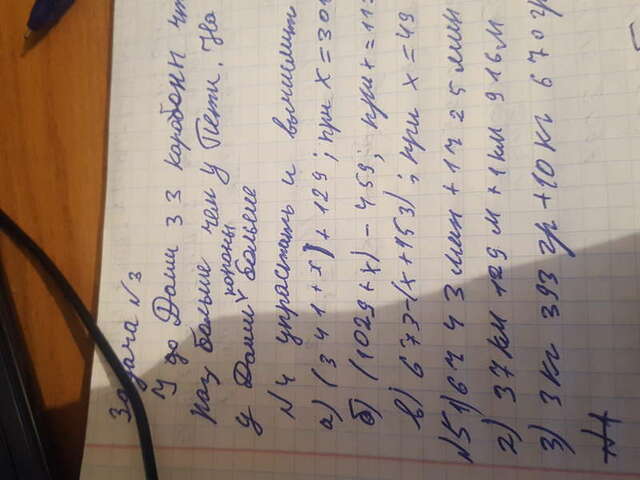 Задача №3
У до Даши 33 карабоны чт
раз больше чем у Пети. На
у Даши короны больше
№4 упрастать и вычислить
а) (341+x)+129; при x=301
б) (1029+x)-459; при x=11
в) 673-(x+153); при x=49
№5 1) 6ч 43мин + 1ч 25мин
2) 37км 129м + 1км 916м
3) 3кг 393гр + 10кг 670гр
№1